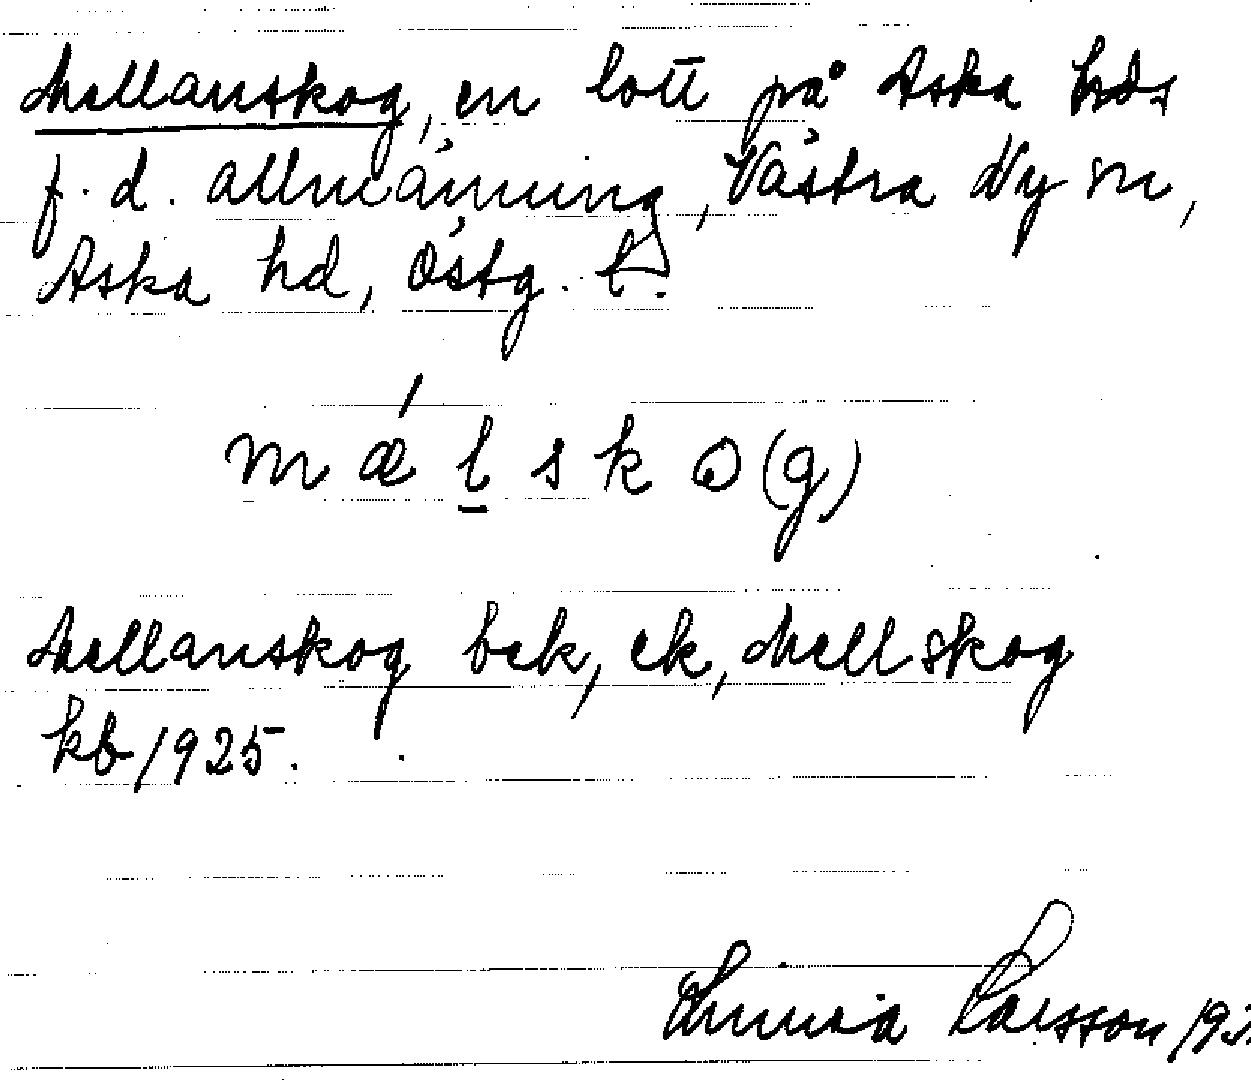 Mellanskog, en lott på Aska hds
f. d. allmänning, Västra Ny sn,
Aska hd, Östg. l.
m ǽ l s k o (g)
Mellanskog bek, ek, Mellskog
kb 1925.
Larsson